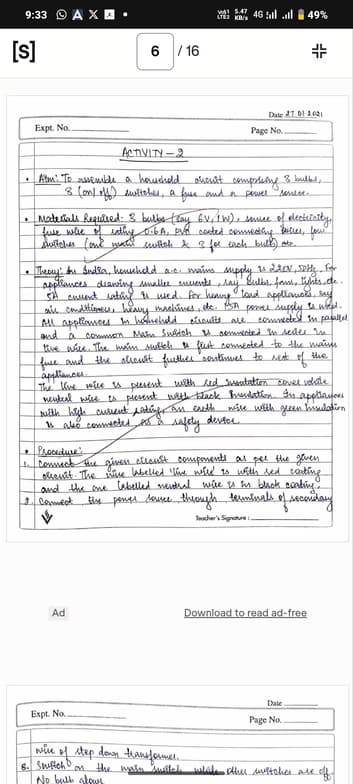 9:33
5.47 KB/s 4G 49%
[S]
6 / 16
Date 27.01.2021
Expt. No.
Page No.
ACTIVITY - 2
• Aim: To assemble a household circuit comprising 3 bulbs,
3 (on/off) switches, a fuse and a power source.
• Materials Required: 3 bulbs (say 6V, 1W), source of electricity,
fuse wire of rating 0.6A, PVC coated connecting wires, four
switches (one main switch & 3 for each bulb) etc.
• Theory: In India, household a.c. mains supply is 220V, 50Hz. For
appliances drawing smaller currents, say bulbs, fans, lights, etc.
5A current rating is used. For heavy load appliances say
air conditioners, heavy machines, etc. 15A power supply is used.
All appliances in household circuits are connected in parallel
and a common Main Switch is connected in series in
live wire. The main switch is first connected to the mains
fuse and the circuit further continues to rest of the
appliances.
The live wire is present with red insulation cover while
neutral wire is present with black insulation. In appliances
with high current rating, an earth wire with green insulation
is also connected as a safety device.
• Procedure:
1. Connect the given circuit components as per the given
circuit. The wire labelled 'live wire' is with red coating
and the one labelled neutral wire is in black coating.
2. Connect the power source through terminals of secondary
Teacher's Signature :
Ad
Download to read ad-free
Date
Expt. No.
Page No.
wire of step down transformer.
3. Switch on the main switch while other switches are off
No bulb glows